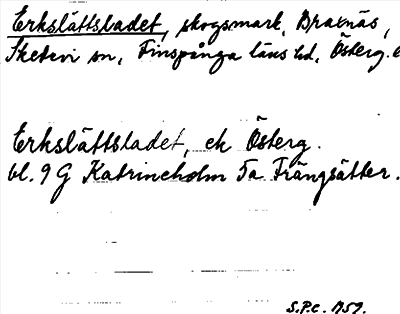 Erkslättsladet, skogsmark, Braxnäs,
Skedevi sn, Finspånga läns hd, Österg.
Erkslättsladet, ek Österg.
bl. 9 G Katrineholm 5a Frängsätter.
S.P.C. 1959.